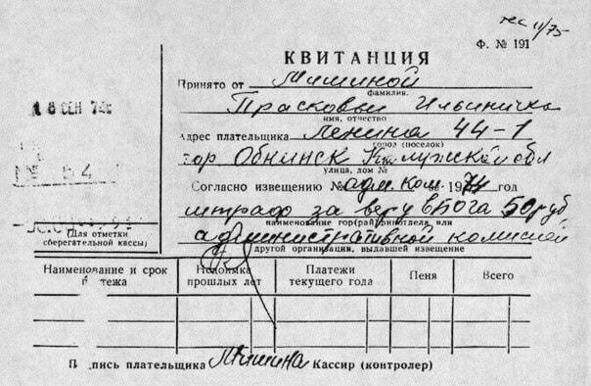 тес 11/75
Ф. № 191
КВИТАНЦИЯ
Принято от Мишиной
фамилия.
Прасковьи Ильиничны
имя, отчество
18 СЕН 74
Адрес плательщика Ленина 44-1
город (поселок)
гор Обнинск Калужской обл
улица, дом №
№ 64
Согласно извещению № адм. ком. 1974 год
штраф за веру в бога 50 руб
наименование гор(рай)финотдела или
(Для отметки
сберегательной кассы)
административной комиссией
другой организации, выдавшей извещение
Наименование и срок платежа
Недоимка прошлых лет
Платежи текущего года
Пеня
Всего
Подпись плательщика Мишина Кассир (контролер)